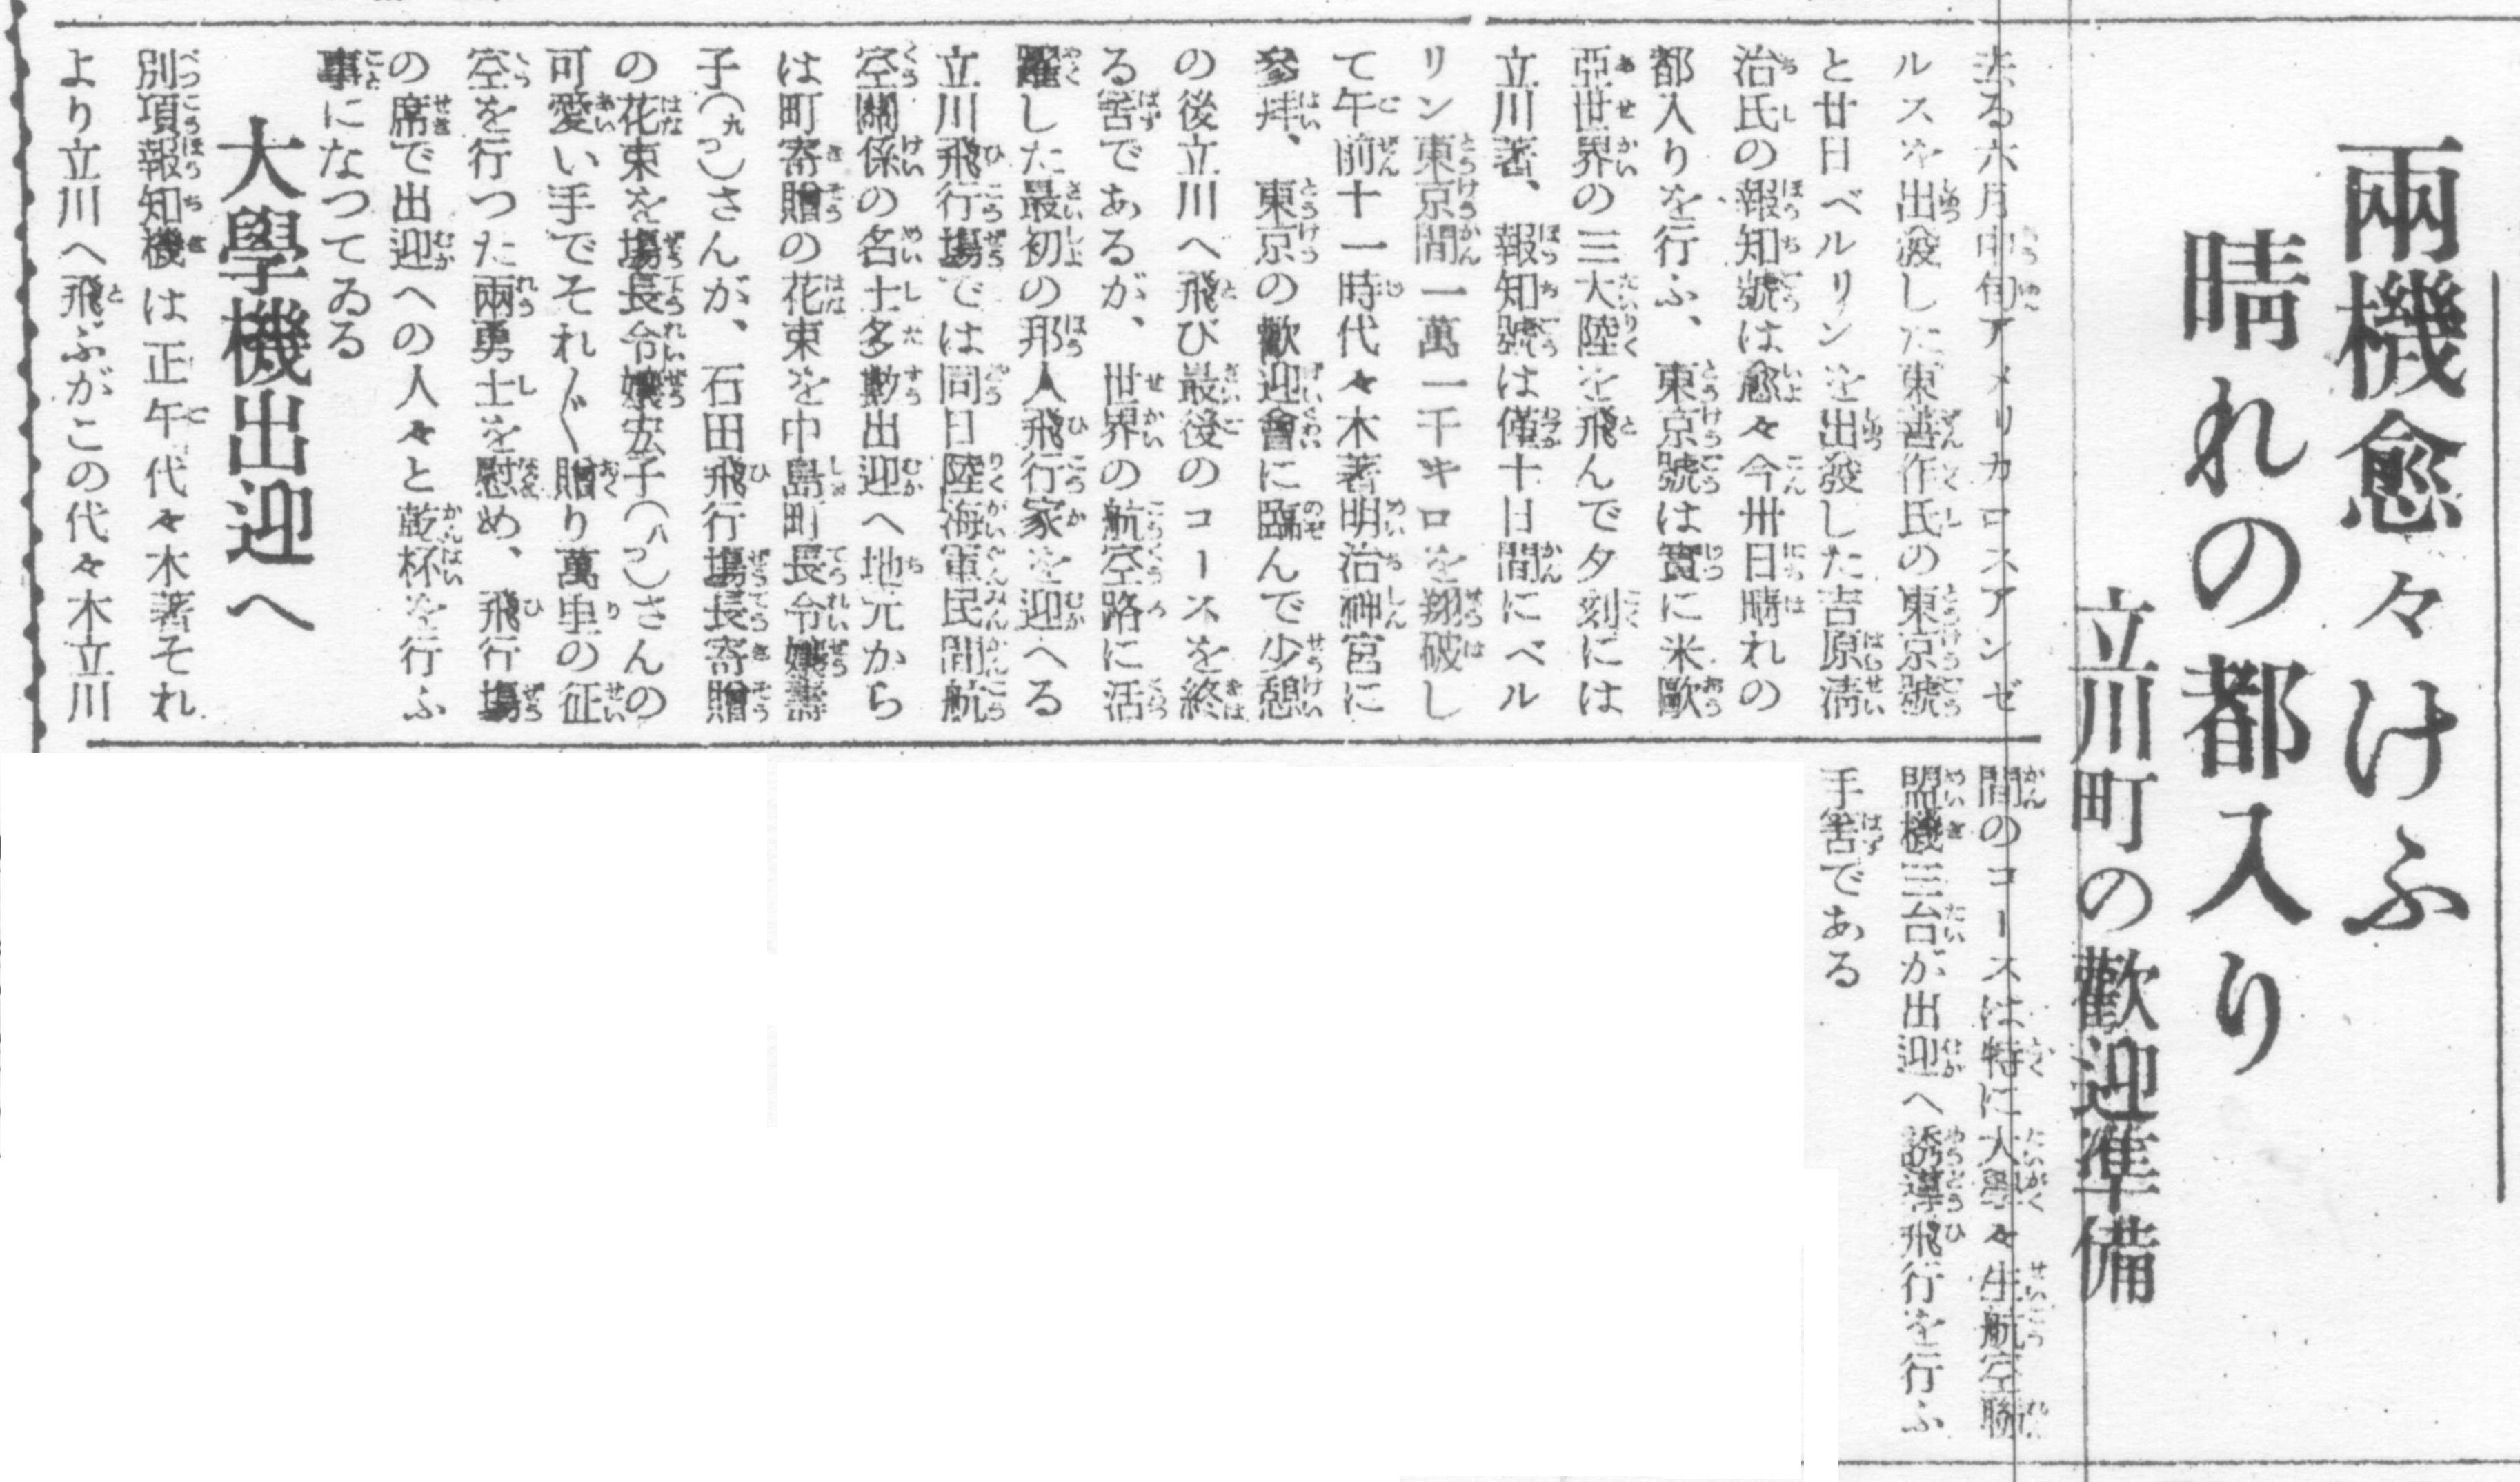 兩機愈々けふ
晴れの都入り
立川町の歡迎準備
去る六月中旬アメリカロスアンゼ
ルスを出發した東善作氏の東京號
と廿日ベルリンを出發した吉原淸
治氏の報知號は愈々今卅日晴れの
都入りを行ふ、東京號は實に米歐
亞世界の三大陸を飛んで夕刻には
立川著、報知號は僅十日間にベル
リン東京間一萬一千キロを翔破し
て午前十一時代々木著明治神宮に
參拜、東京の歡迎會に臨んで少憩
の後立川へ飛び最後のコースを終
る筈であるが、世界の航空路に活
躍した最初の邦人飛行家を迎へる
立川飛行場では同日陸海軍民間航
空關係の名士多數出迎へ地元から
は町寄贈の花束を中島町長令孃壽
子(九つ)さんが、石田飛行場長寄贈
の花束を場長令孃宏子(八つ)さんの
可愛い手でそれ〲贈り萬里の征
空を行つた兩勇士を慰め、飛行場
の席で出迎への人々と乾杯を行ふ
事になつてゐる
大學機出迎へ
別項報知機は正午代々木著それ
より立川へ飛ぶがこの代々木立川
間のコースは特に大學々生航空聯
盟機三台が出迎へ誘導飛行を行ふ
手筈である